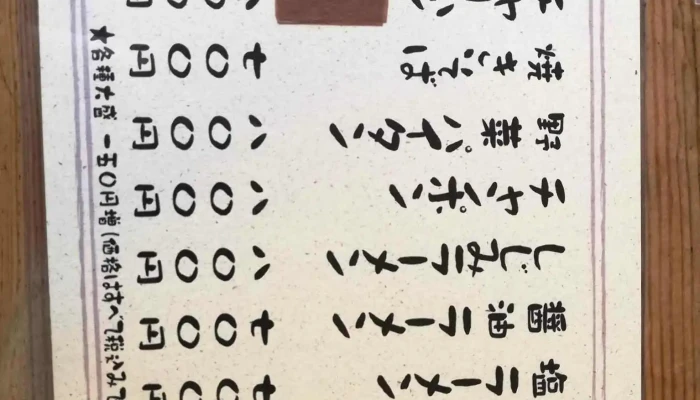 塩ラーメン 七〇〇円
醤油ラーメン 七〇〇円
しじみラーメン 八〇〇円
チャンポン 八〇〇円
野菜パイタン 八〇〇円
焼きそば 七〇〇円
★各種大盛 一五〇円増(価格はすべて税込みで